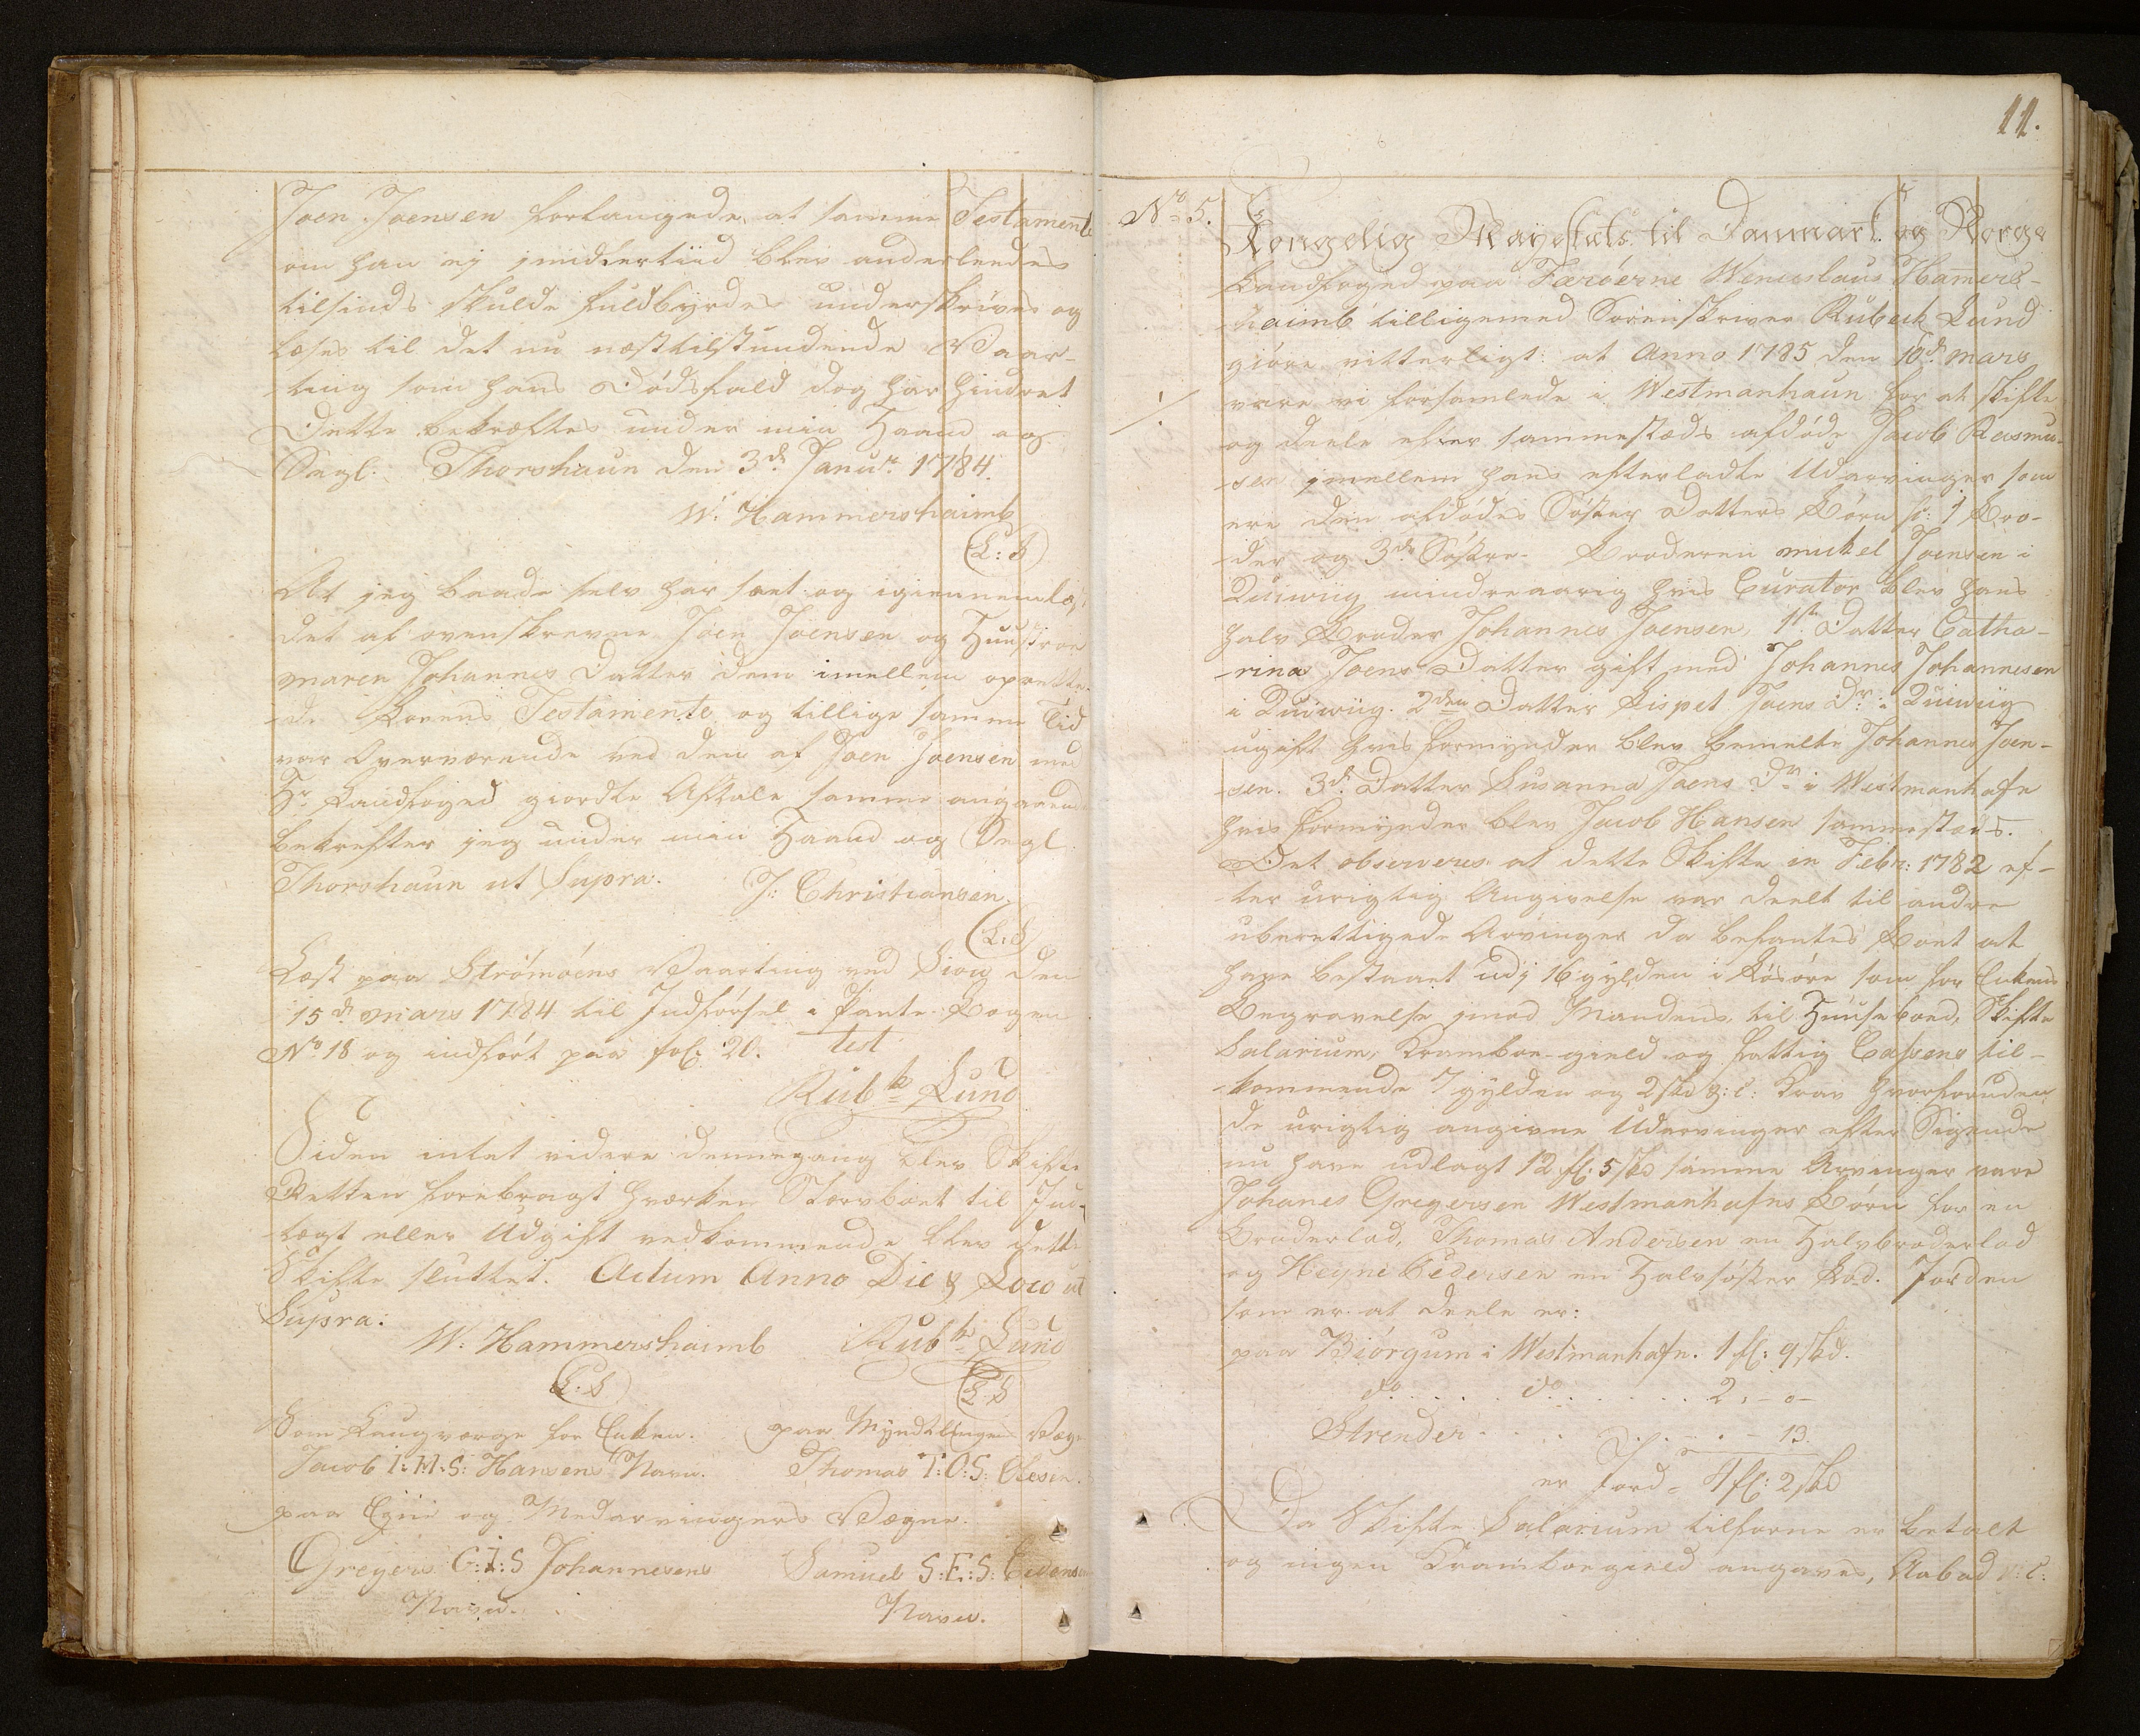 Joen Joensen forlangede, at samme Testamente
om han ej imidlertiid blev anderleedes
tilsinds skulde fuldbyrdes underskrives og
læses til det nu næsttilstundende Vaar-
ting som hans Dødsfald dog har hindret
Dette bekræftes under min Haand og
Segl. Thorshaun den 3d. Janur. 1784.
W: Hammershaimb
(L:S)
At jeg baade selv har seet og igiennemlæst
det af ovenskrevne Joen Joensen og Huustroe
Maren Johannes Datter dem imellem oprette-
de Testamente og tillige samme Tid
var Overværende ved den af Joen Joensen med
Hr. Landfoged giordte Aftale samme angaaende
bekræfter jeg under min Haand og Segl.
Thorshaun ut Supra. J: Christiansen.
(L:S)
Læst paa Strømøens Vaarting ved Sion den
15d. Mars 1784 til Indførsel i Pante-Bogen
No. 18 og indført paa fol. 20. test
Rubk Lund
Siden intet videre dennegang blev Skifte
Retten forebragt hværken Stervboet til Ind-
tægt eller Udgift vedkommende blev dette
Skifte sluttet. Actum Anno Die & Loco ut
Supra:
W. Hammershaimb Rubk Lund
(L:S) (L:S)
Som Laugværge for Enken. paa Myndtlingens Vegne
Jacob I:H:S: Hansens Navn. Thomas T:O:S: Olesen.
paa Egne og Medarvingers Vegne.
Gregers G:I:S Johannesens Samuel S:E:S:
Navn. Navn.
11.
No. 5.
Kongelig Mayestæts til Danmark og Norge
Landfoged paa Færøerne Wenceslaus Hamers-
haimb tilligemed Sorenskriver Rubeck Lund
giøre vitterligt: at Anno 1785 den 10d. Mars
vare vi forsamlede i Westmanhaun for at skifte
og deele efter sammestæds afdøde Jacob Rasmu-
sen imellem hans efterladte Udarvinger som
ere den afdødes Søster Datters Børn so: 1 Bro-
der og 3de Søstre. Broderen Mickel Joensen i
Quiwiig mindreaarig hvis Curator blev hans
halv Broder Johannes Joensen, 1ste Datter Catha-
rina Joens Datter gift med Johannes Johannesen
i Quiwiig. 2den Datter Lispet Joens Dr. i Quiwiig
ugift hvis formynder blev bemelte Johannes Joen-
sen. 3d. Datter Susanna Joens Dr. i Westmanhafn
hvis formynder blev Jacob Hansen sammestæds.
Det observeres at dette Skifte in Febr: 1782 ef-
ter urigtig Angivelse var deelt til andre
uberettigede Arvinger da befantes Boet at
have bestaaet udj 16 gylden i Løsøre som for Enkens
Begravelse imod Mandens, til Huusebond, Skifte
Salarium, Kramboe-gield og fattig Cassens til-
kommende 7 gylden og 2 skd &: c: krav hvorforuden
de urigtig angivne Udarvinger efter Sigende
nu have udlagt 12 fl: 5 skd samme Arvinger vare
Johanes Gregersen Westmanhafns Børn for en
Broderlod, Thomas Andersen en Halvbroderlod
og Heyne Pedersen en Halvsøster Lod. Jorden
som er at deele er:
paa Biørgum i Westmanhafn. 1 fl: 9 skd.
do. . . . . do. . . . . . 2, - o -
Strender . . . . . . . . . - 13.
er Jord - 4 fl: 2 skd
Da Skifte Salarium tilforne er betalt
og ingen Kramboegield angaves, Aabod &: c: